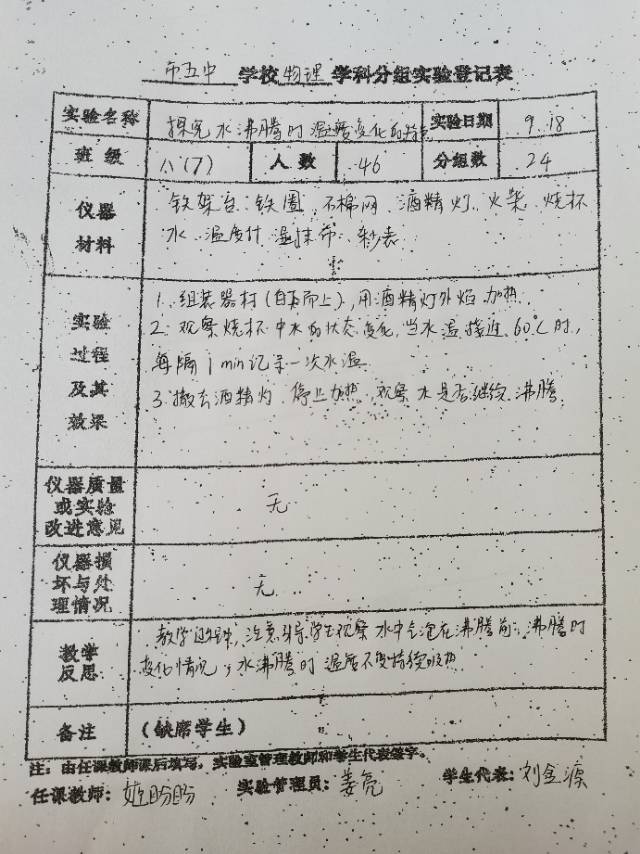 市五中 学校 物理 学科分组实验登记表
实验名称 探究水沸腾时温度变化的特点 实验日期 9.18
班级 八(7) 人数 46 分组数 24
仪器材料 铁架台 铁圈 石棉网 酒精灯 火柴 烧杯
水 温度计 湿抹布 秒表
实验过程及其效果 1. 组装器材(自下而上),用酒精灯外焰加热.
2. 观察烧杯中水的状态变化,当水温接近60℃时,
每隔1min记录一次水温
3. 撤去酒精灯 停止加热 观察水是否继续沸腾.
仪器质量或实验改进意见 无
仪器损坏与处理情况 无
教学反思 教学过程,注意引导学生观察水中气泡在沸腾前、沸腾时
变化情况,水沸腾时温度不变持续吸热
备注 (缺席学生)
注:由任课教师课后填写,实验室管理教师和学生代表签字。
任课教师: 姬盼盼 实验管理员: 姜亮 学生代表: 刘金源